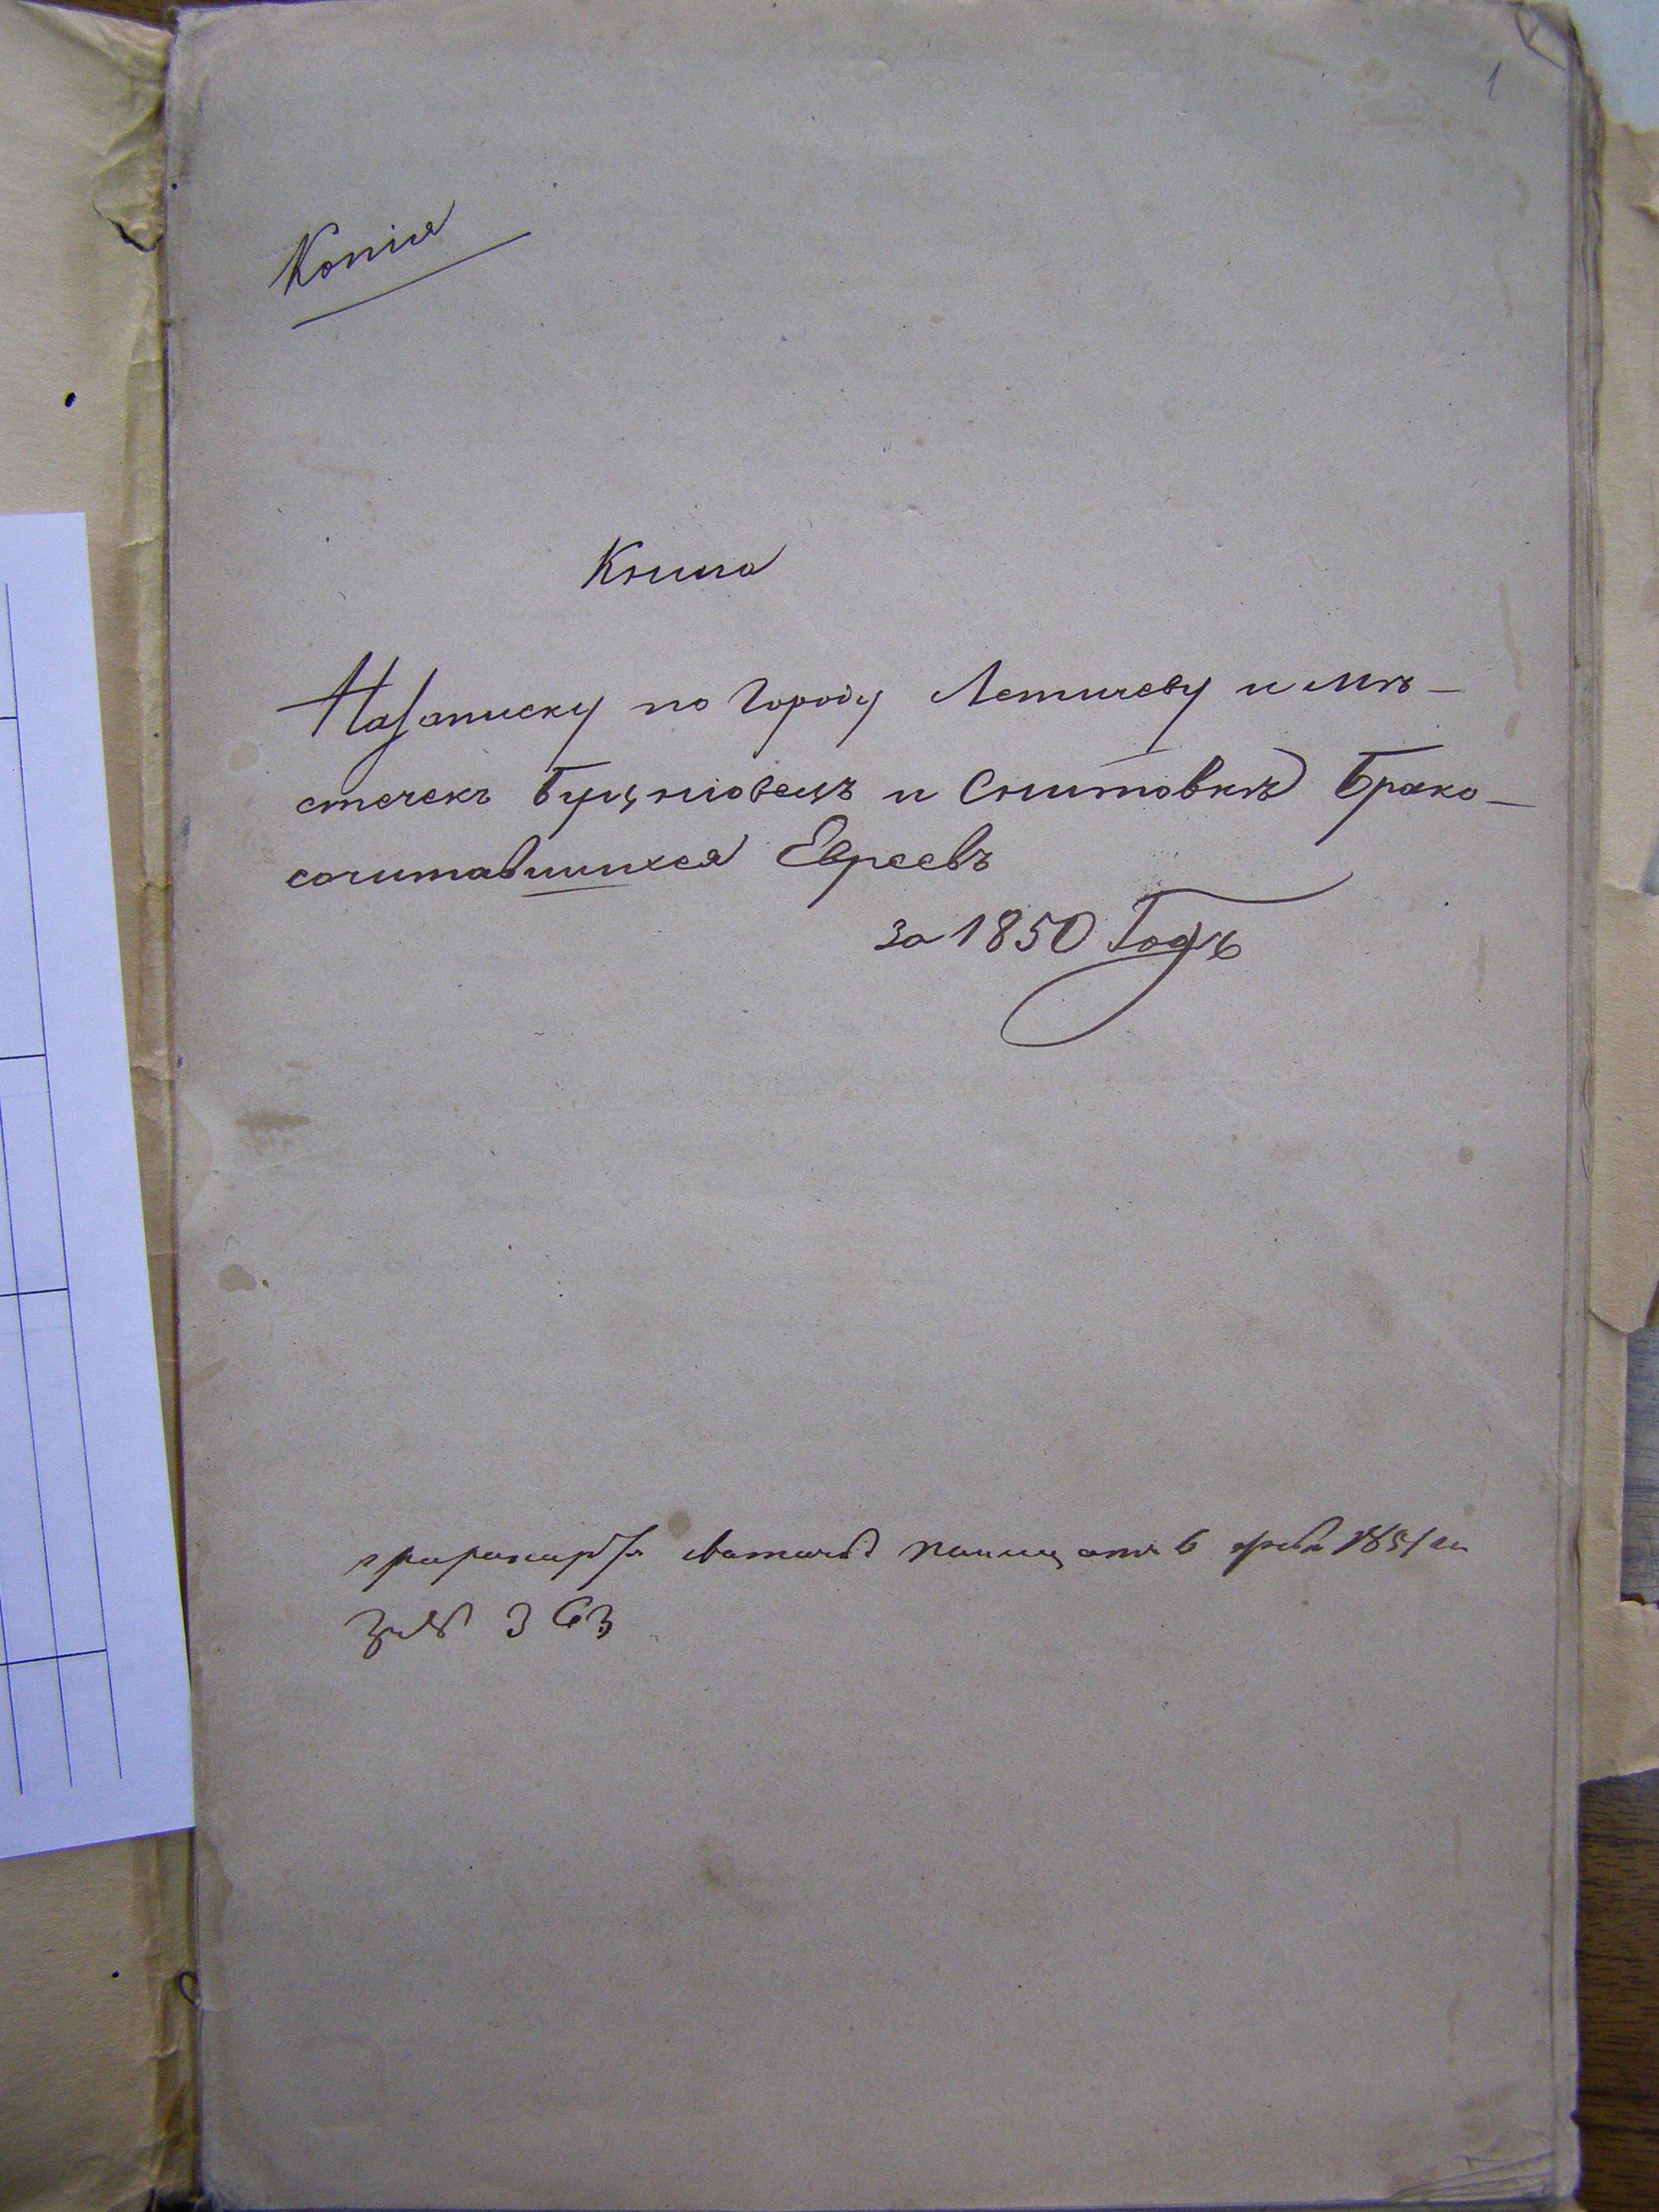 1
Копія
Книга
На записку по Городу Летичеву и мѣ-
стечекъ Буцнювецъ и Снитовкѣ Брако-
сочитавшихся Евреевъ
за 1850 Годъ
6 1851
363